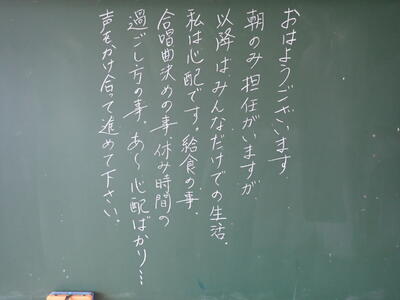 おはようございます
朝のみ担任がいますが
以降はみんなだけでの生活。
私は心配です。給食の事、
合唱曲決めの事、休み時間の
過ごし方の事、あ〜心配ばかり…
声をかけ合って進めて下さい。